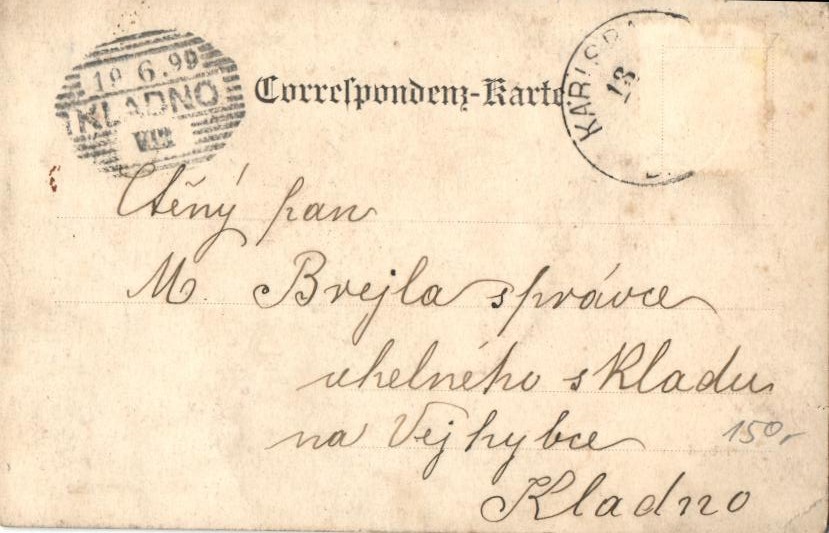 19 6.99
KLADNO
VIII
Correspondenz-Karte
KARLSBA
18
Ctěný pan
M. Brejla správce
uhelného skladu
na Vejhybce
Kladno
150,-